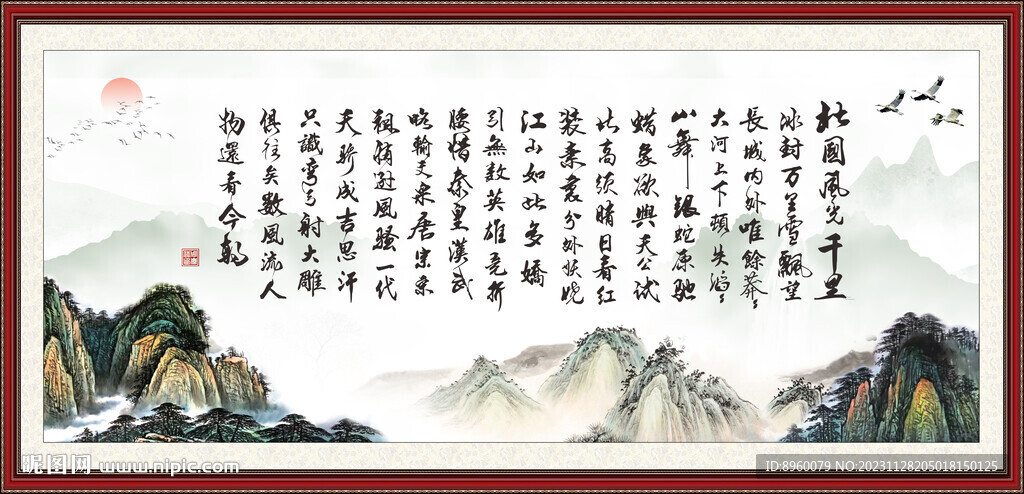 北國風光千里
冰封万里雪飄望
長城内外唯餘莽〻
大河上下頓失滔〻
山舞銀蛇原馳
蜡象欲與天公試
比高须晴日看红
装素裹分外妖娆
江山如此多嬌
引無数英雄竞折
腰惜秦皇漢武
略輸文采唐宗宋
祖稍遜風騷一代
天骄成吉思汗
只識彎弓射大雕
俱往矣数風流人
物還看今朝
昵图网 www.nipic.com
ID:8960079 NO:20231128205018150125